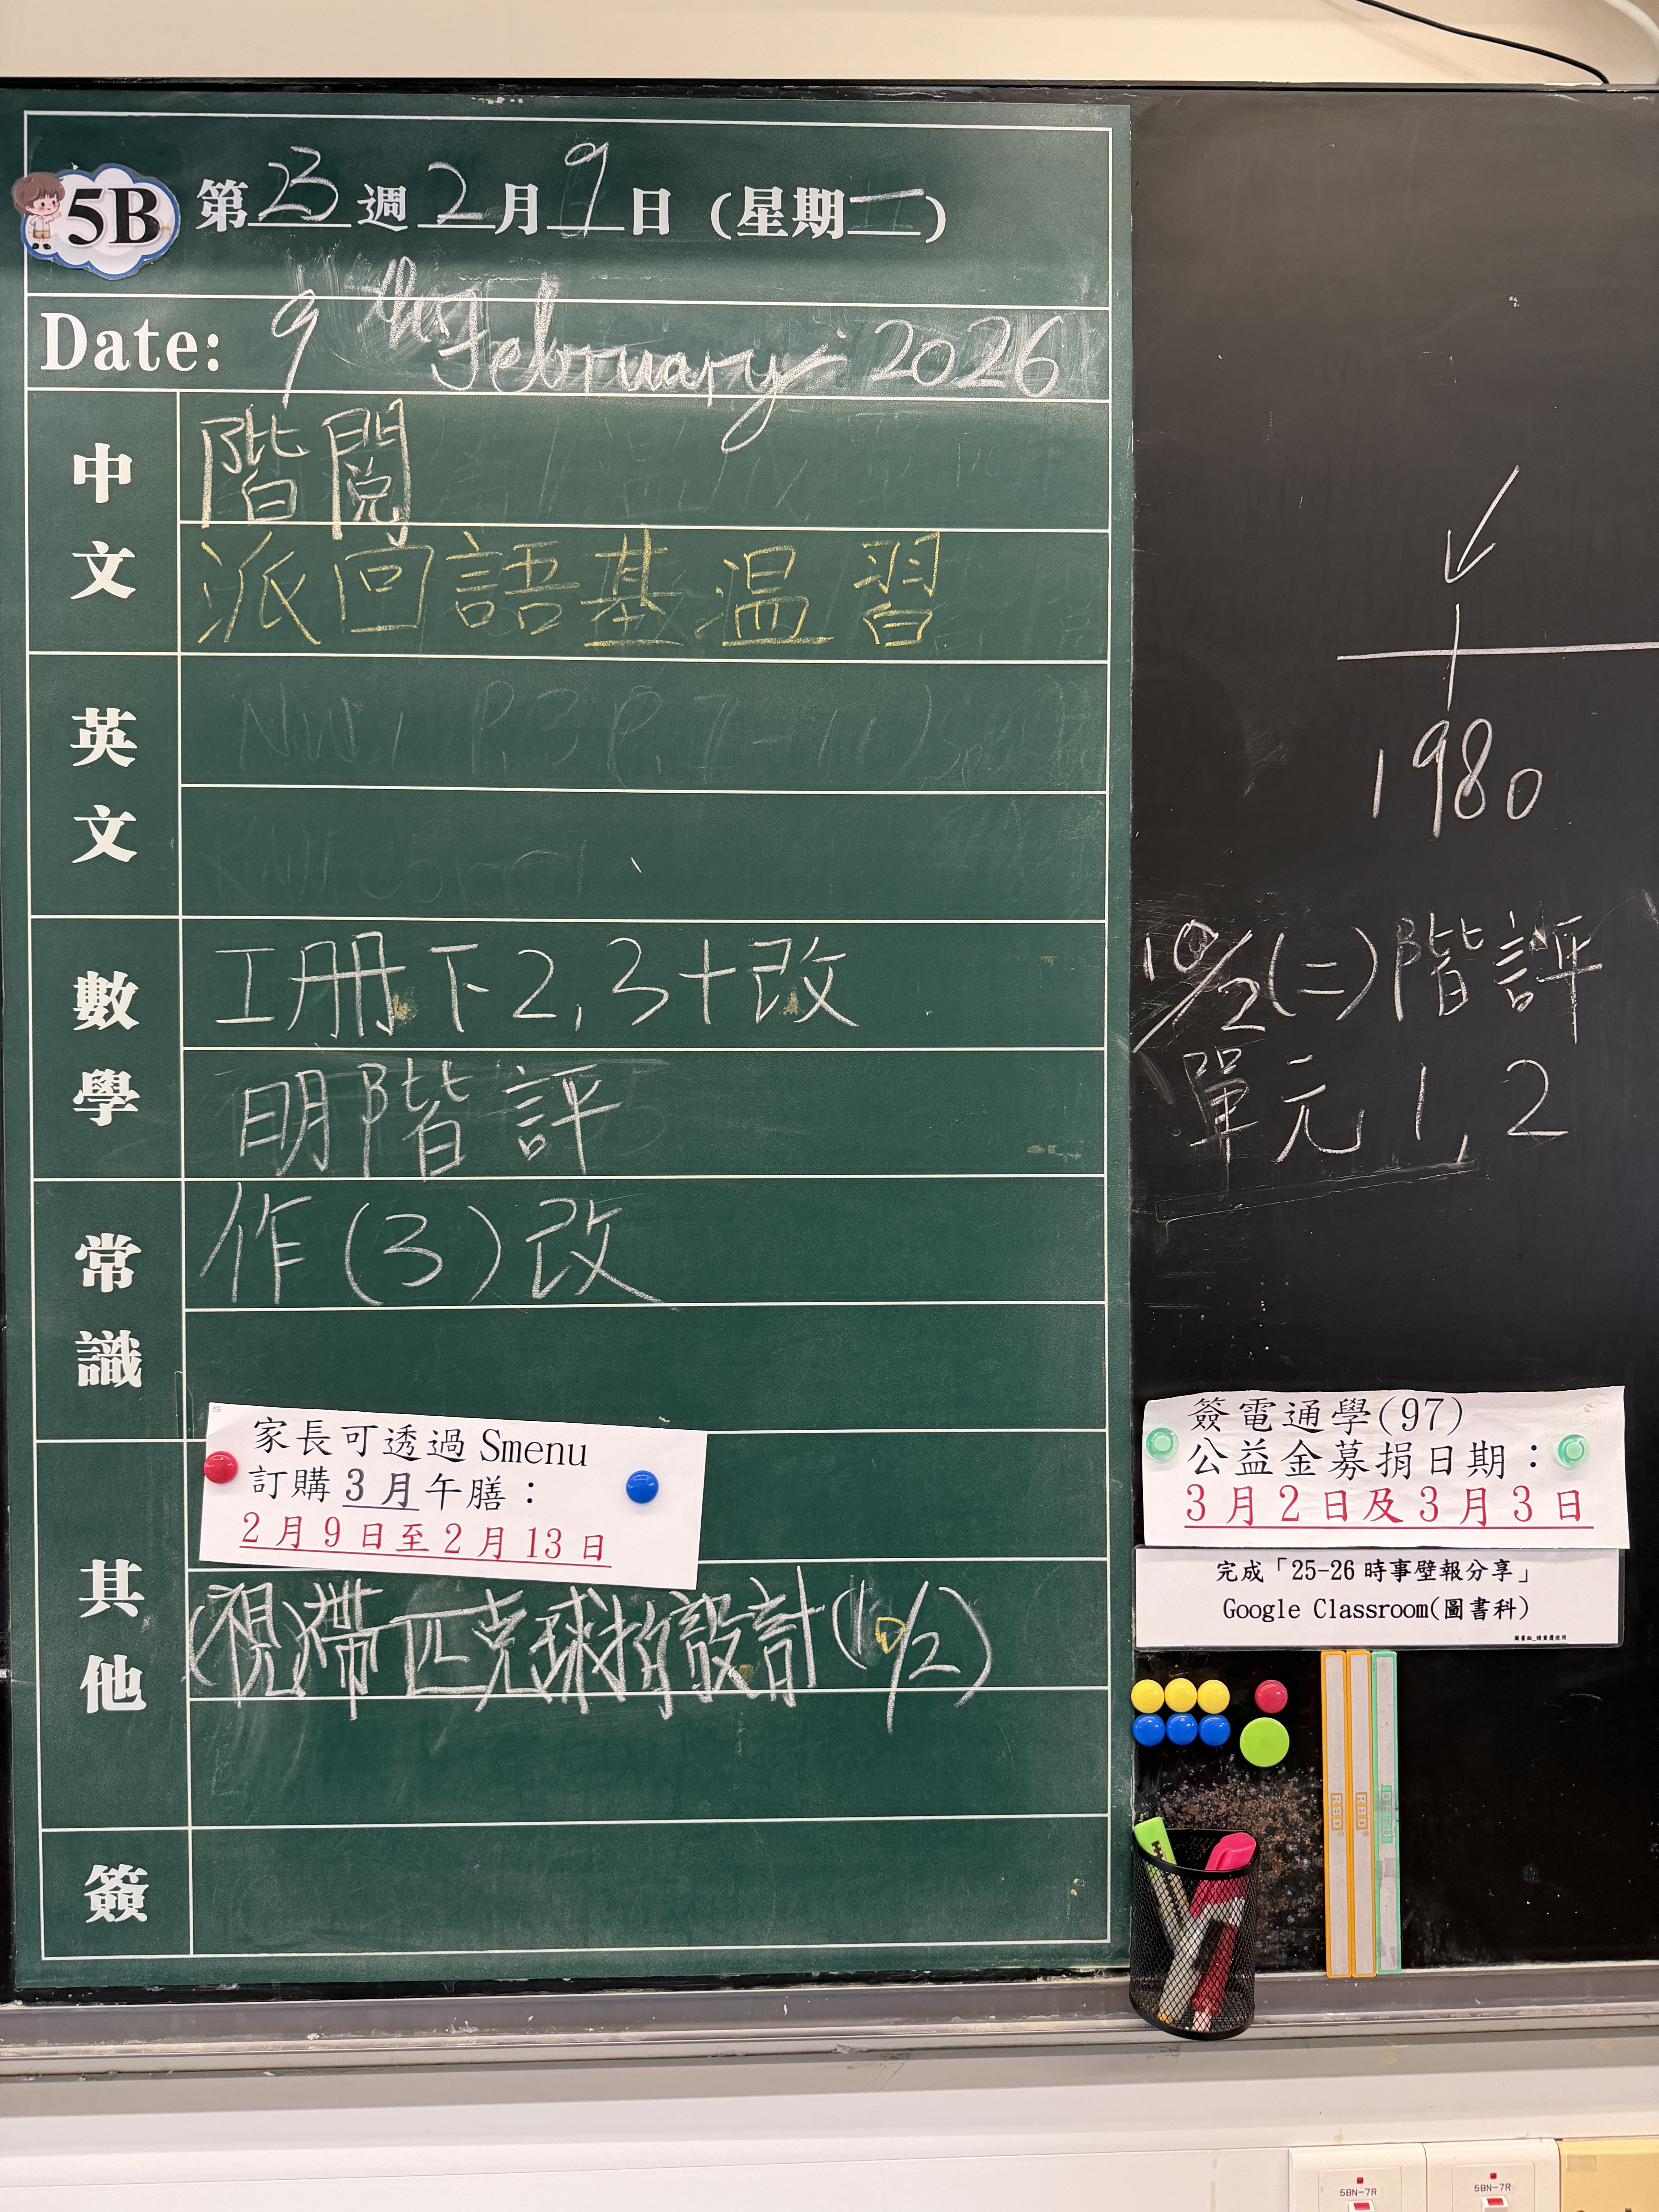 5B 第23週2月9日(星期一)
Date: 9th February 2026
中文
階閱
派回語基温習
英文
數學
工册下2,3+改
明階評
常識
作(3)改
其他
家長可透過 Smenu
訂購 3月午膳：
2月9日至2月13日
(視)帶匹克球拍設計(10/2)
簽
1980
10/2(二)階評
單元1,2
簽電通學(97)
公益金募捐日期：
3月2日及3月3日
完成「25-26 時事壁報分享」
Google Classroom(圖書科)
RBD
RBD
5BN-7R
5BN-7R